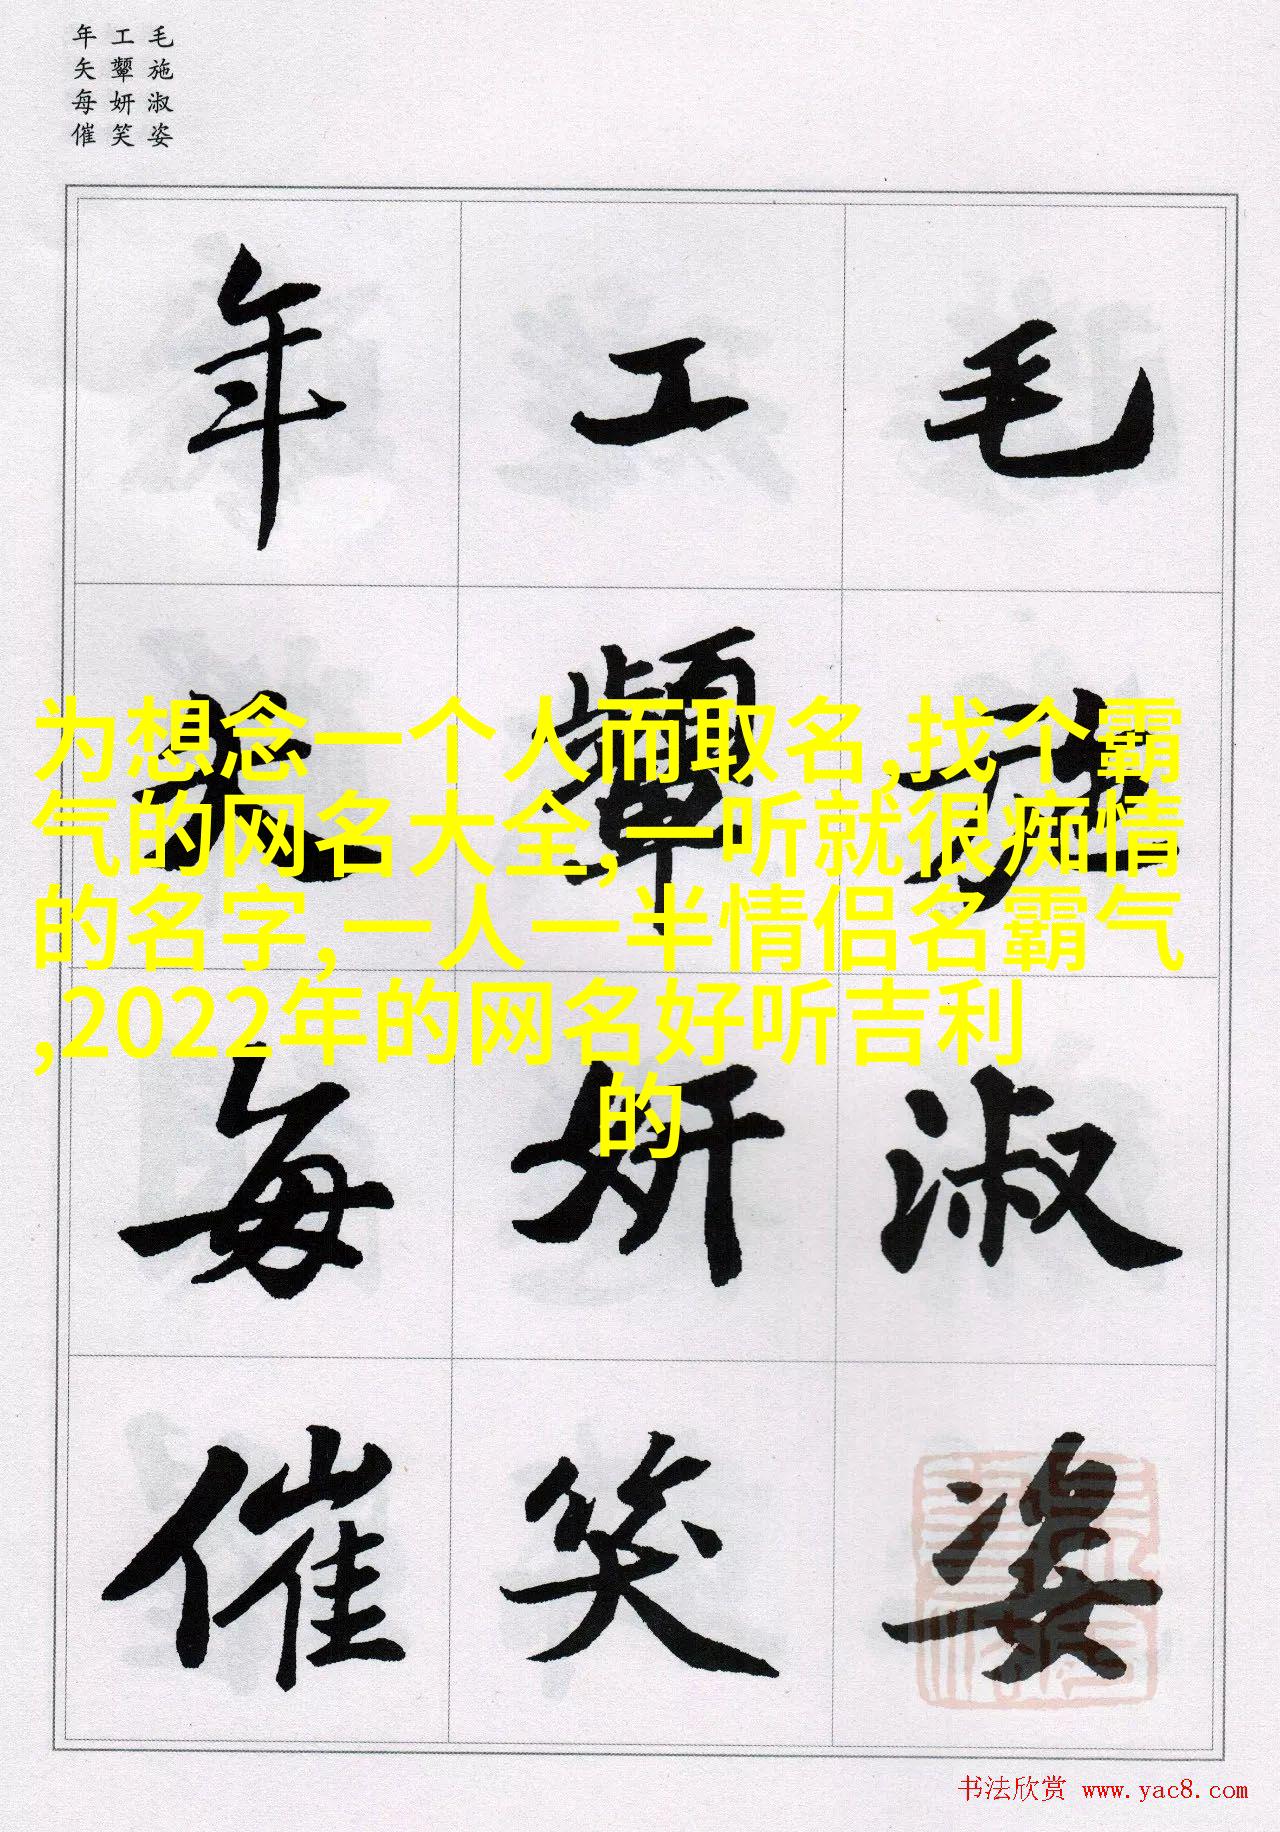 毛施淑姿
工顰妍笑
年矢每催
毛施淑姿
工顰妍笑
年矢每催
为想念一个人而取名,找个霸
气的网名大全,一听就很痴情
的名字,一人一半情侣名霸气
,2022年的网名好听吉利
的
书法欣赏 www.yac8.com